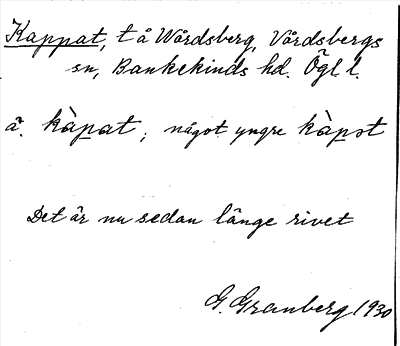 Kappat, t å Wårdsberg, Vårdsbergs
sn, Bankekinds hd. Ögl l.
ä. kàpat; något yngre kàpət
Det är nu sedan länge rivet
G. Granberg 1930